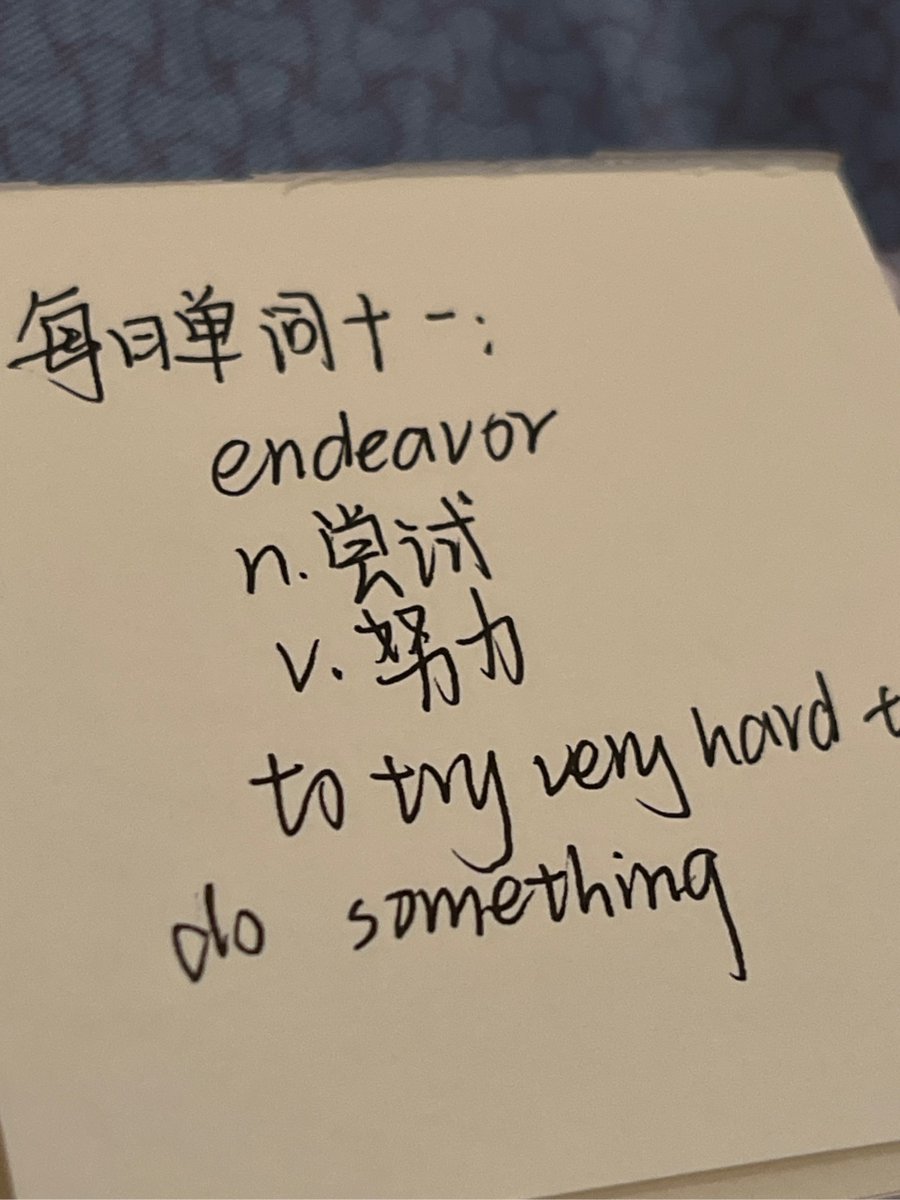 每日单词十一:
endeavor
n. 尝试
v. 努力
to try very hard t
do something